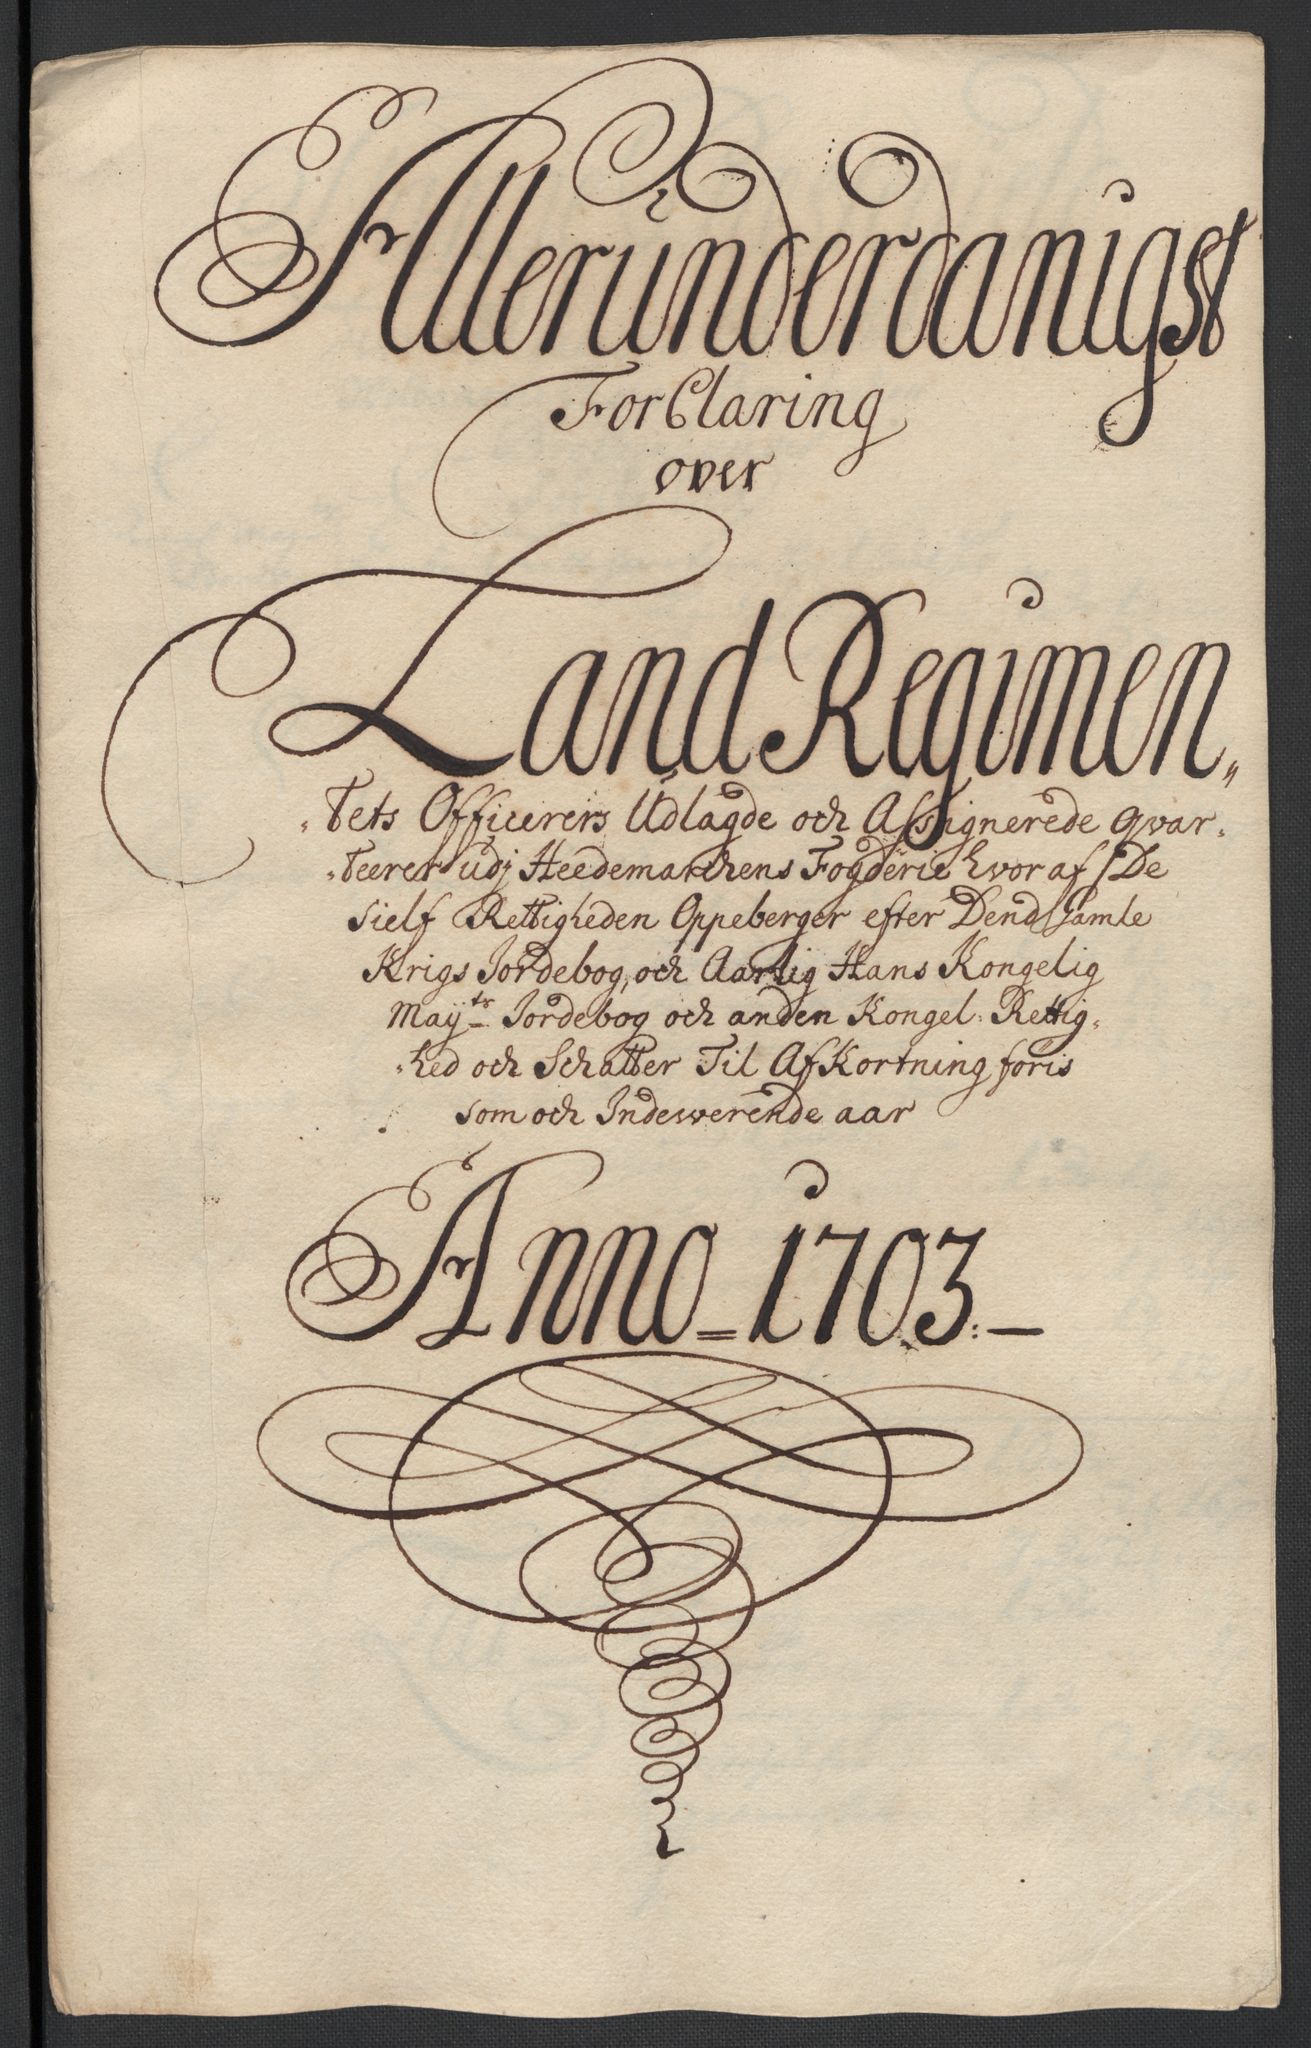 Alleründerdanigst
ForClaring
over
Land Regimen„
„tets Officerers Udlagde och Assignerede qvar„
„teerer udj Heedemarchens Fogderie hvor af De
sielf Rettigheden Oppeberger efter Dend Gamle
Krigs Jordebog, och Aarlig Hans Kongelig
Mayts Jordebog och anden Kongel: Rettig„
„hed och Schatter Til AfKortning føris
som och Indeswerende aar
Anno 1703:—